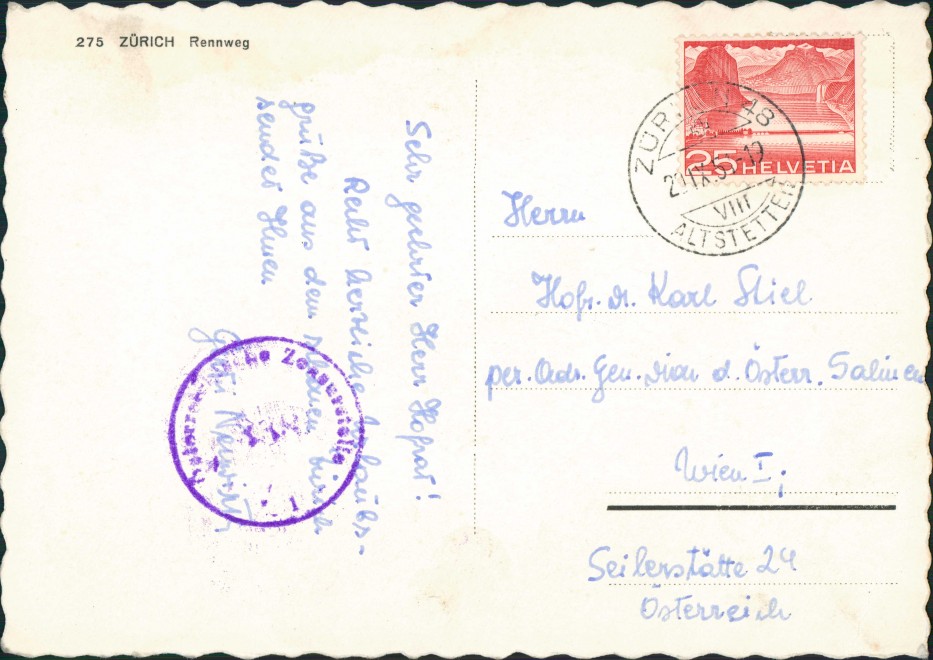 275 ZÜRICH Rennweg
Sehr geehrter Herr Hofrat!
Recht herzliche Urlaubs-
grüße aus dem schönen
sendet Ihnen
HELVETIA
25
ZÜRICH 48
VIII
ALTSTETTEN
Herrn
Hofr. dr. Karl Stiel
per. Adr. Gen. Dion d. Österr. Salinen
Wien I;
Seilerstätte 24
Österreich
Österreichische Zensurstelle